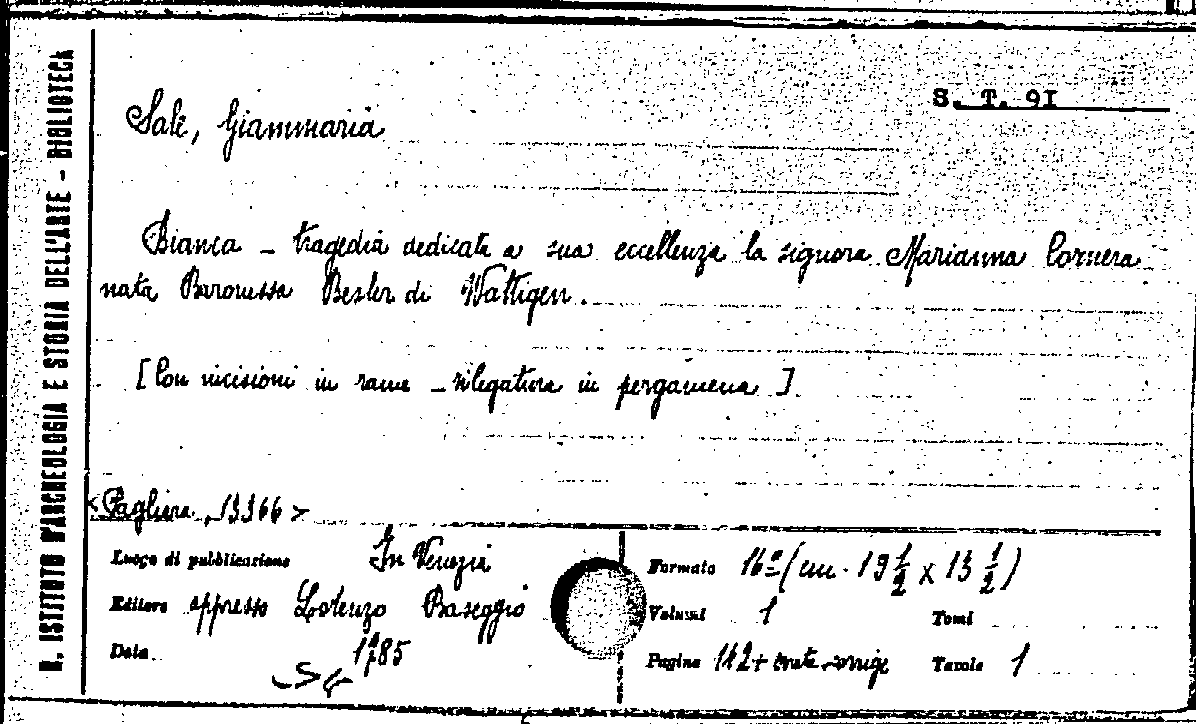 R. ISTITUTO D'ARCHEOLOGIA E STORIA DELL'ARTE - BIBLIOTECA
S. T. 91
Sale, Giammaria
Bianca - tragedia dedicata a sua eccellenza la signora Marianna Cornera
nata Baronessa Besler di Wattigen.
[Con incisioni in rame - rilegatura in pergamena]
<Pagliara, 13366>
Luogo di pubblicazione In Venezia
Editore appresso Lorenzo Baseggio
Data 1785
Formato 16º (cm. 19 1/2 x 13 1/2)
Volumi 1 Tomi
Pagine 112 + Tavole 1